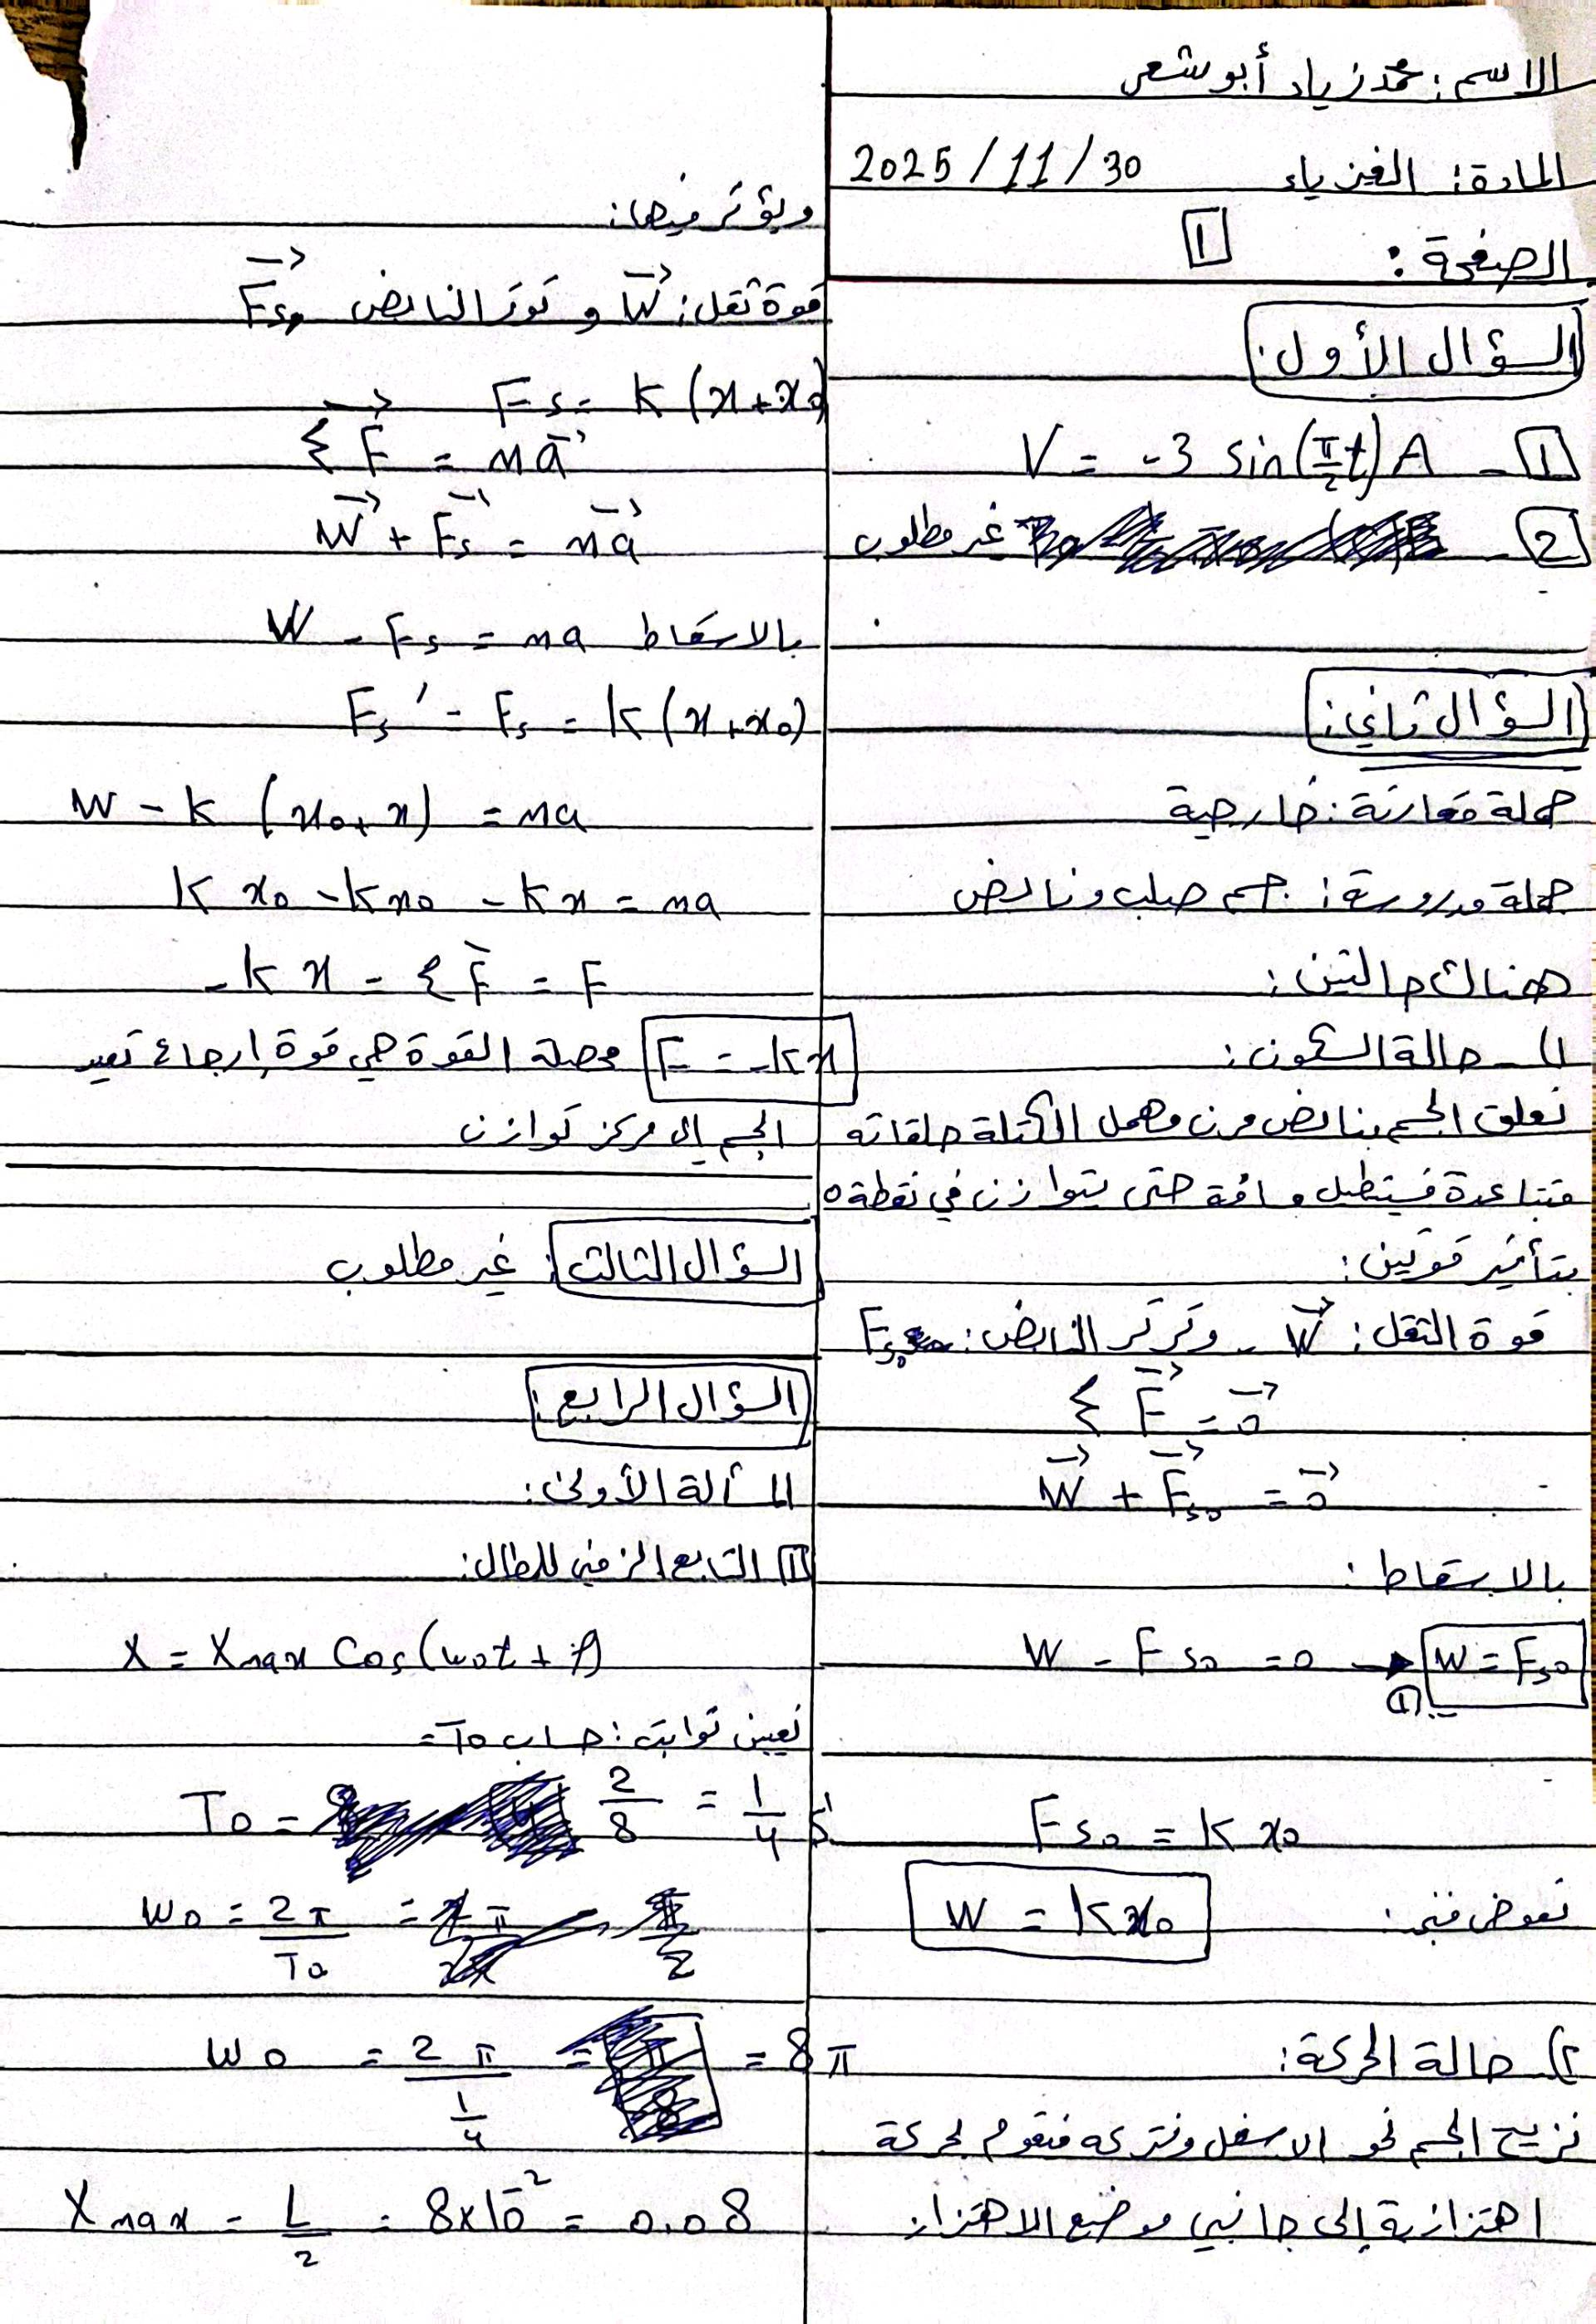 الاسم: محمد زياد أبو شعر
المادة: الفيزياء 2025/11/30
الصفحة: 1
السؤال الأول:
1 - V = -3 sin(π/2 t) A
2 - غير مطلوب
السؤال ثاني:
جملة مقارنة: خارجية
جملة مدروسة: جسم صلب ونابض
هناك حالتين:
1) - حالة السكون:
نعلق الجسم بنابض مرن مهمل الكتلة حلقاته
متباعدة فيستطيل مسافة حتى يتوازن في نقطة o
بتأثير قوتين:
قوة الثقل: W⃗ - وتوتر النابض: Fs₀
Σ F⃗ = 0⃗
W⃗ + F⃗s₀ = 0⃗
بالاسقاط:
W - Fs₀ = 0 → W = Fs₀
(1)
Fs₀ = k x₀
نعوض فنجد: W = k x₀
2) حالة الحركة:
نزيح الجسم نحو الاسفل ونتركه فتقوم بحركة
اهتزازية إلى جانبي موضع الاهتزاز
ويؤثر فيها:
قوة ثقل: W⃗ و توتر النابض F⃗s
Fs = k (x + x₀)
Σ F⃗ = ma⃗
W⃗ + F⃗s = ma⃗
بالاسقاط W - Fs = ma
Fs' - Fs = k (x + x₀)
W - k (x₀ + x) = ma
k x₀ - k x₀ - k x = ma
-k x = Σ F⃗ = F
F = -k x محصلة القوة هي قوة إرجاع تعيد
الجسم إلى مركز توازن
السؤال الثالث: غير مطلوب
السؤال الرابع:
المسألة الأولى:
1 التابع الزمني للمطال:
X = Xmax Cos(ω₀t + φ)
نعين ثوابت: حساب T₀ =
T₀ = 2/8 = 1/4 s
ω₀ = 2π/T₀ =
ω₀ = 2π/(1/4) = 8π
Xmax = L/2 = 8×10⁻² = 0.08